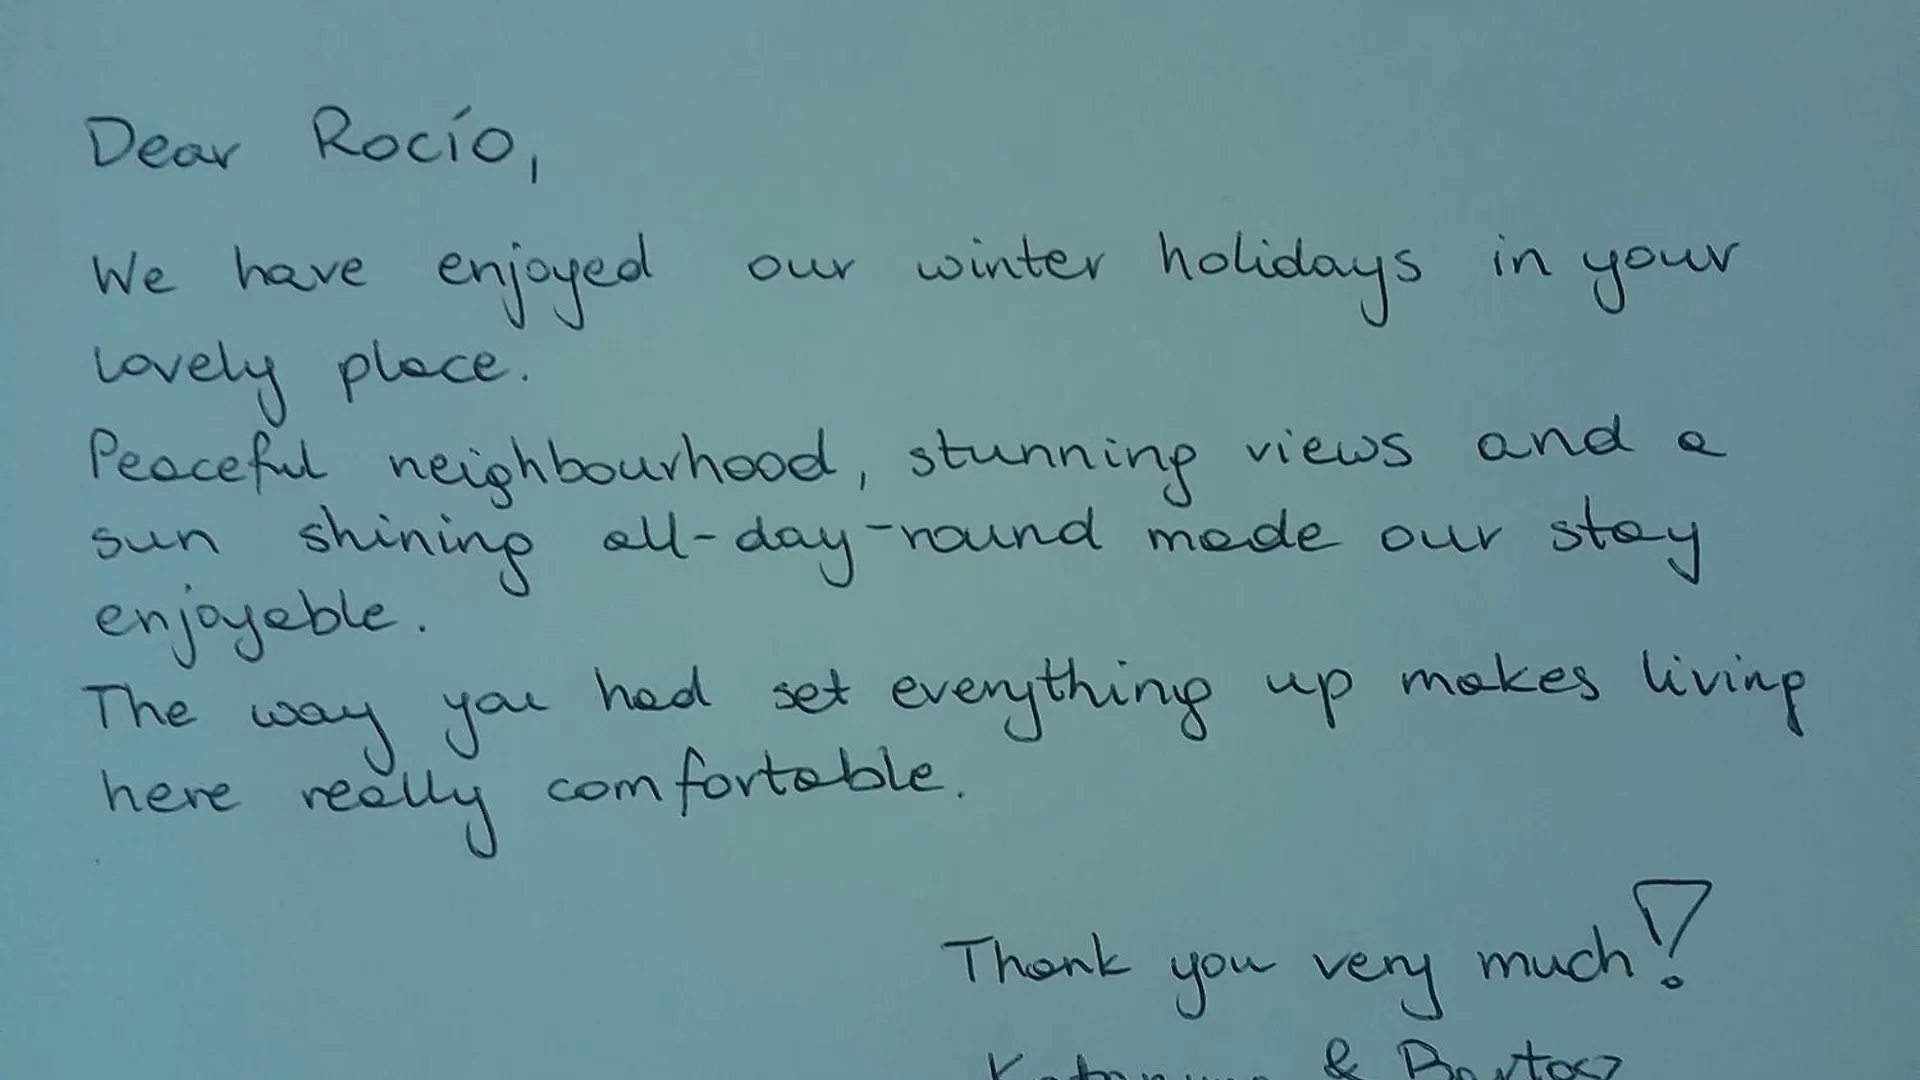 Dear Rocío,
We have enjoyed our winter holidays in your
lovely place.
Peaceful neighbourhood, stunning views and a
sun shining all-day-round made our stay
enjoyable.
The way you had set everything up makes living
here really comfortable.
Thank you very much!
& Bartosz